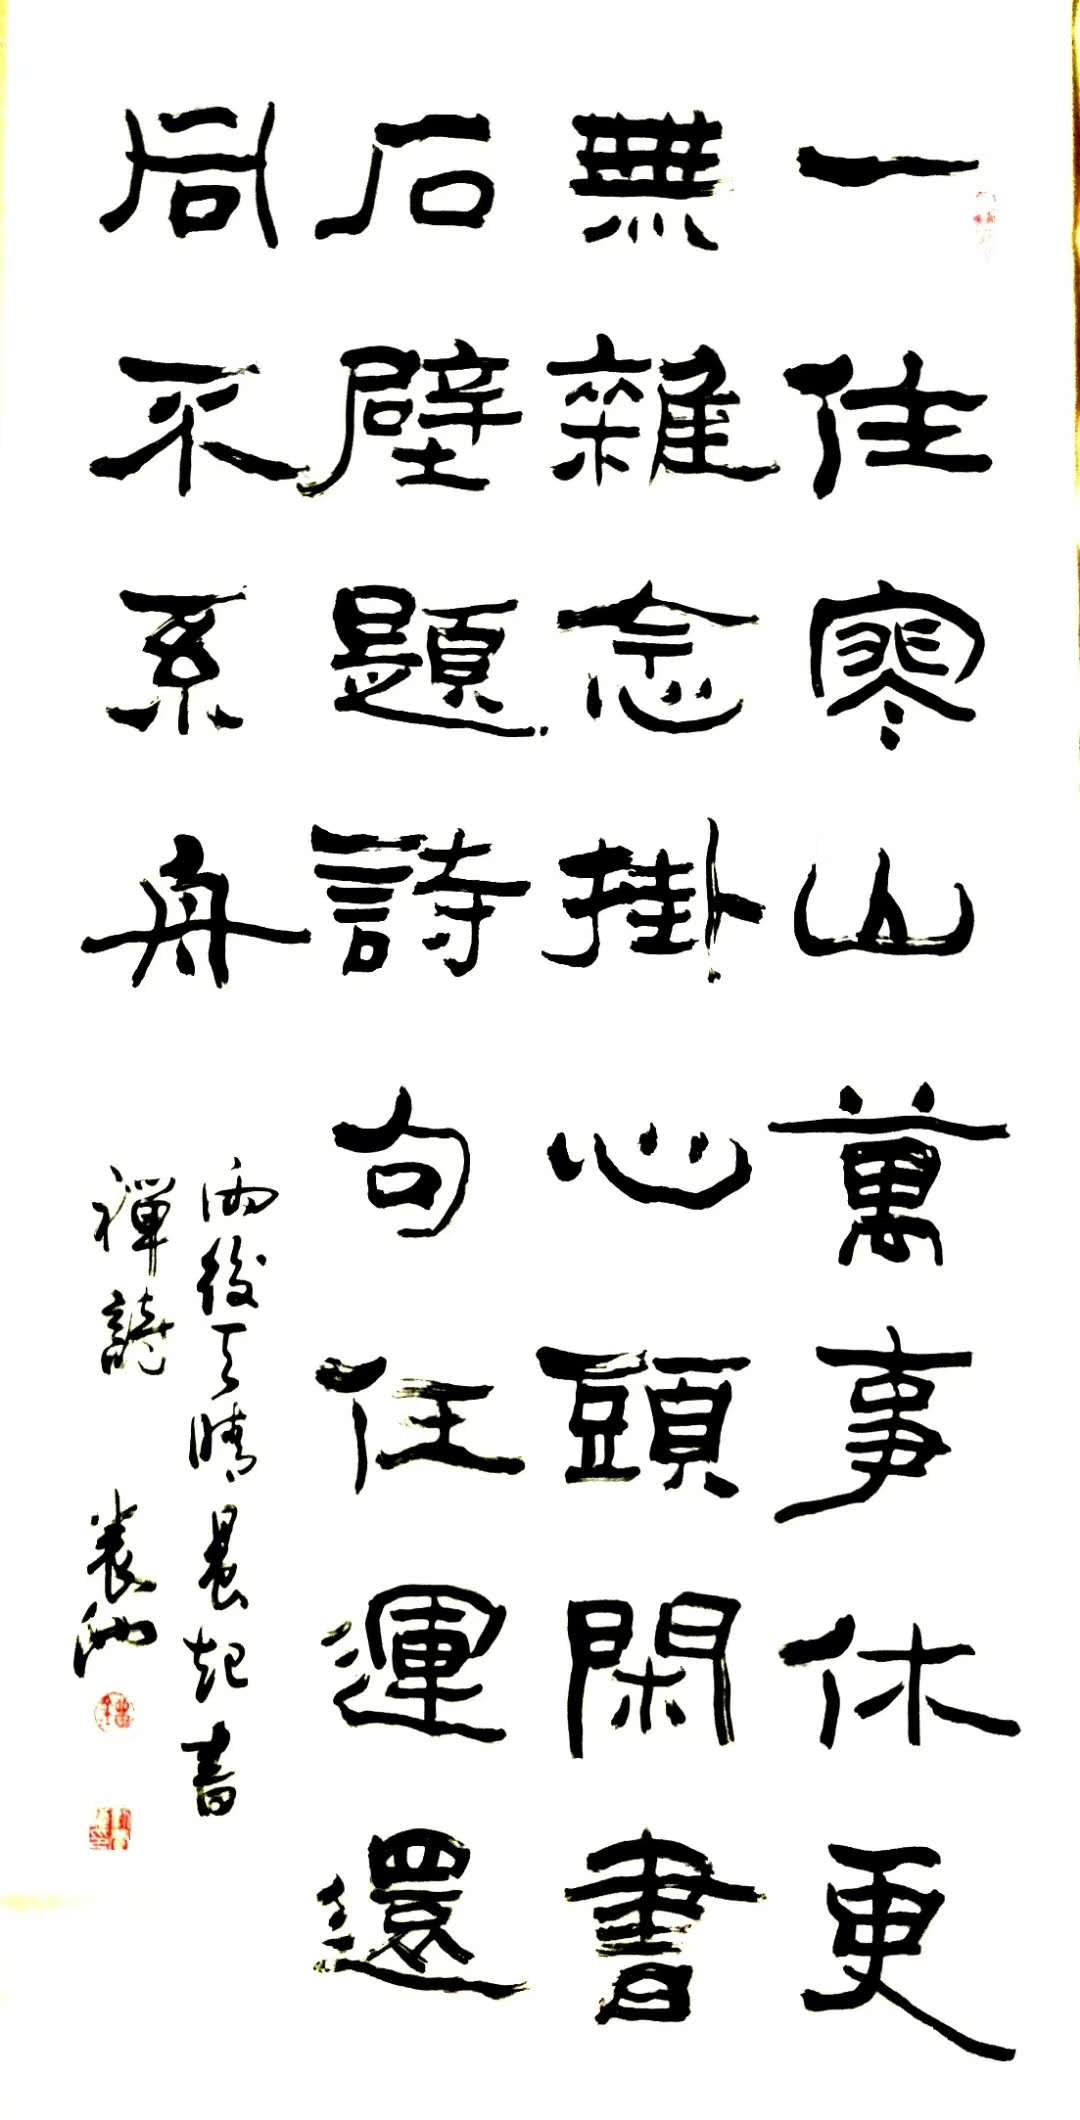 一住寒山萬事休更
無雜念掛心頭閑書
石壁題詩句任運還
同不系舟
雨後天晴晨起書
禪詩